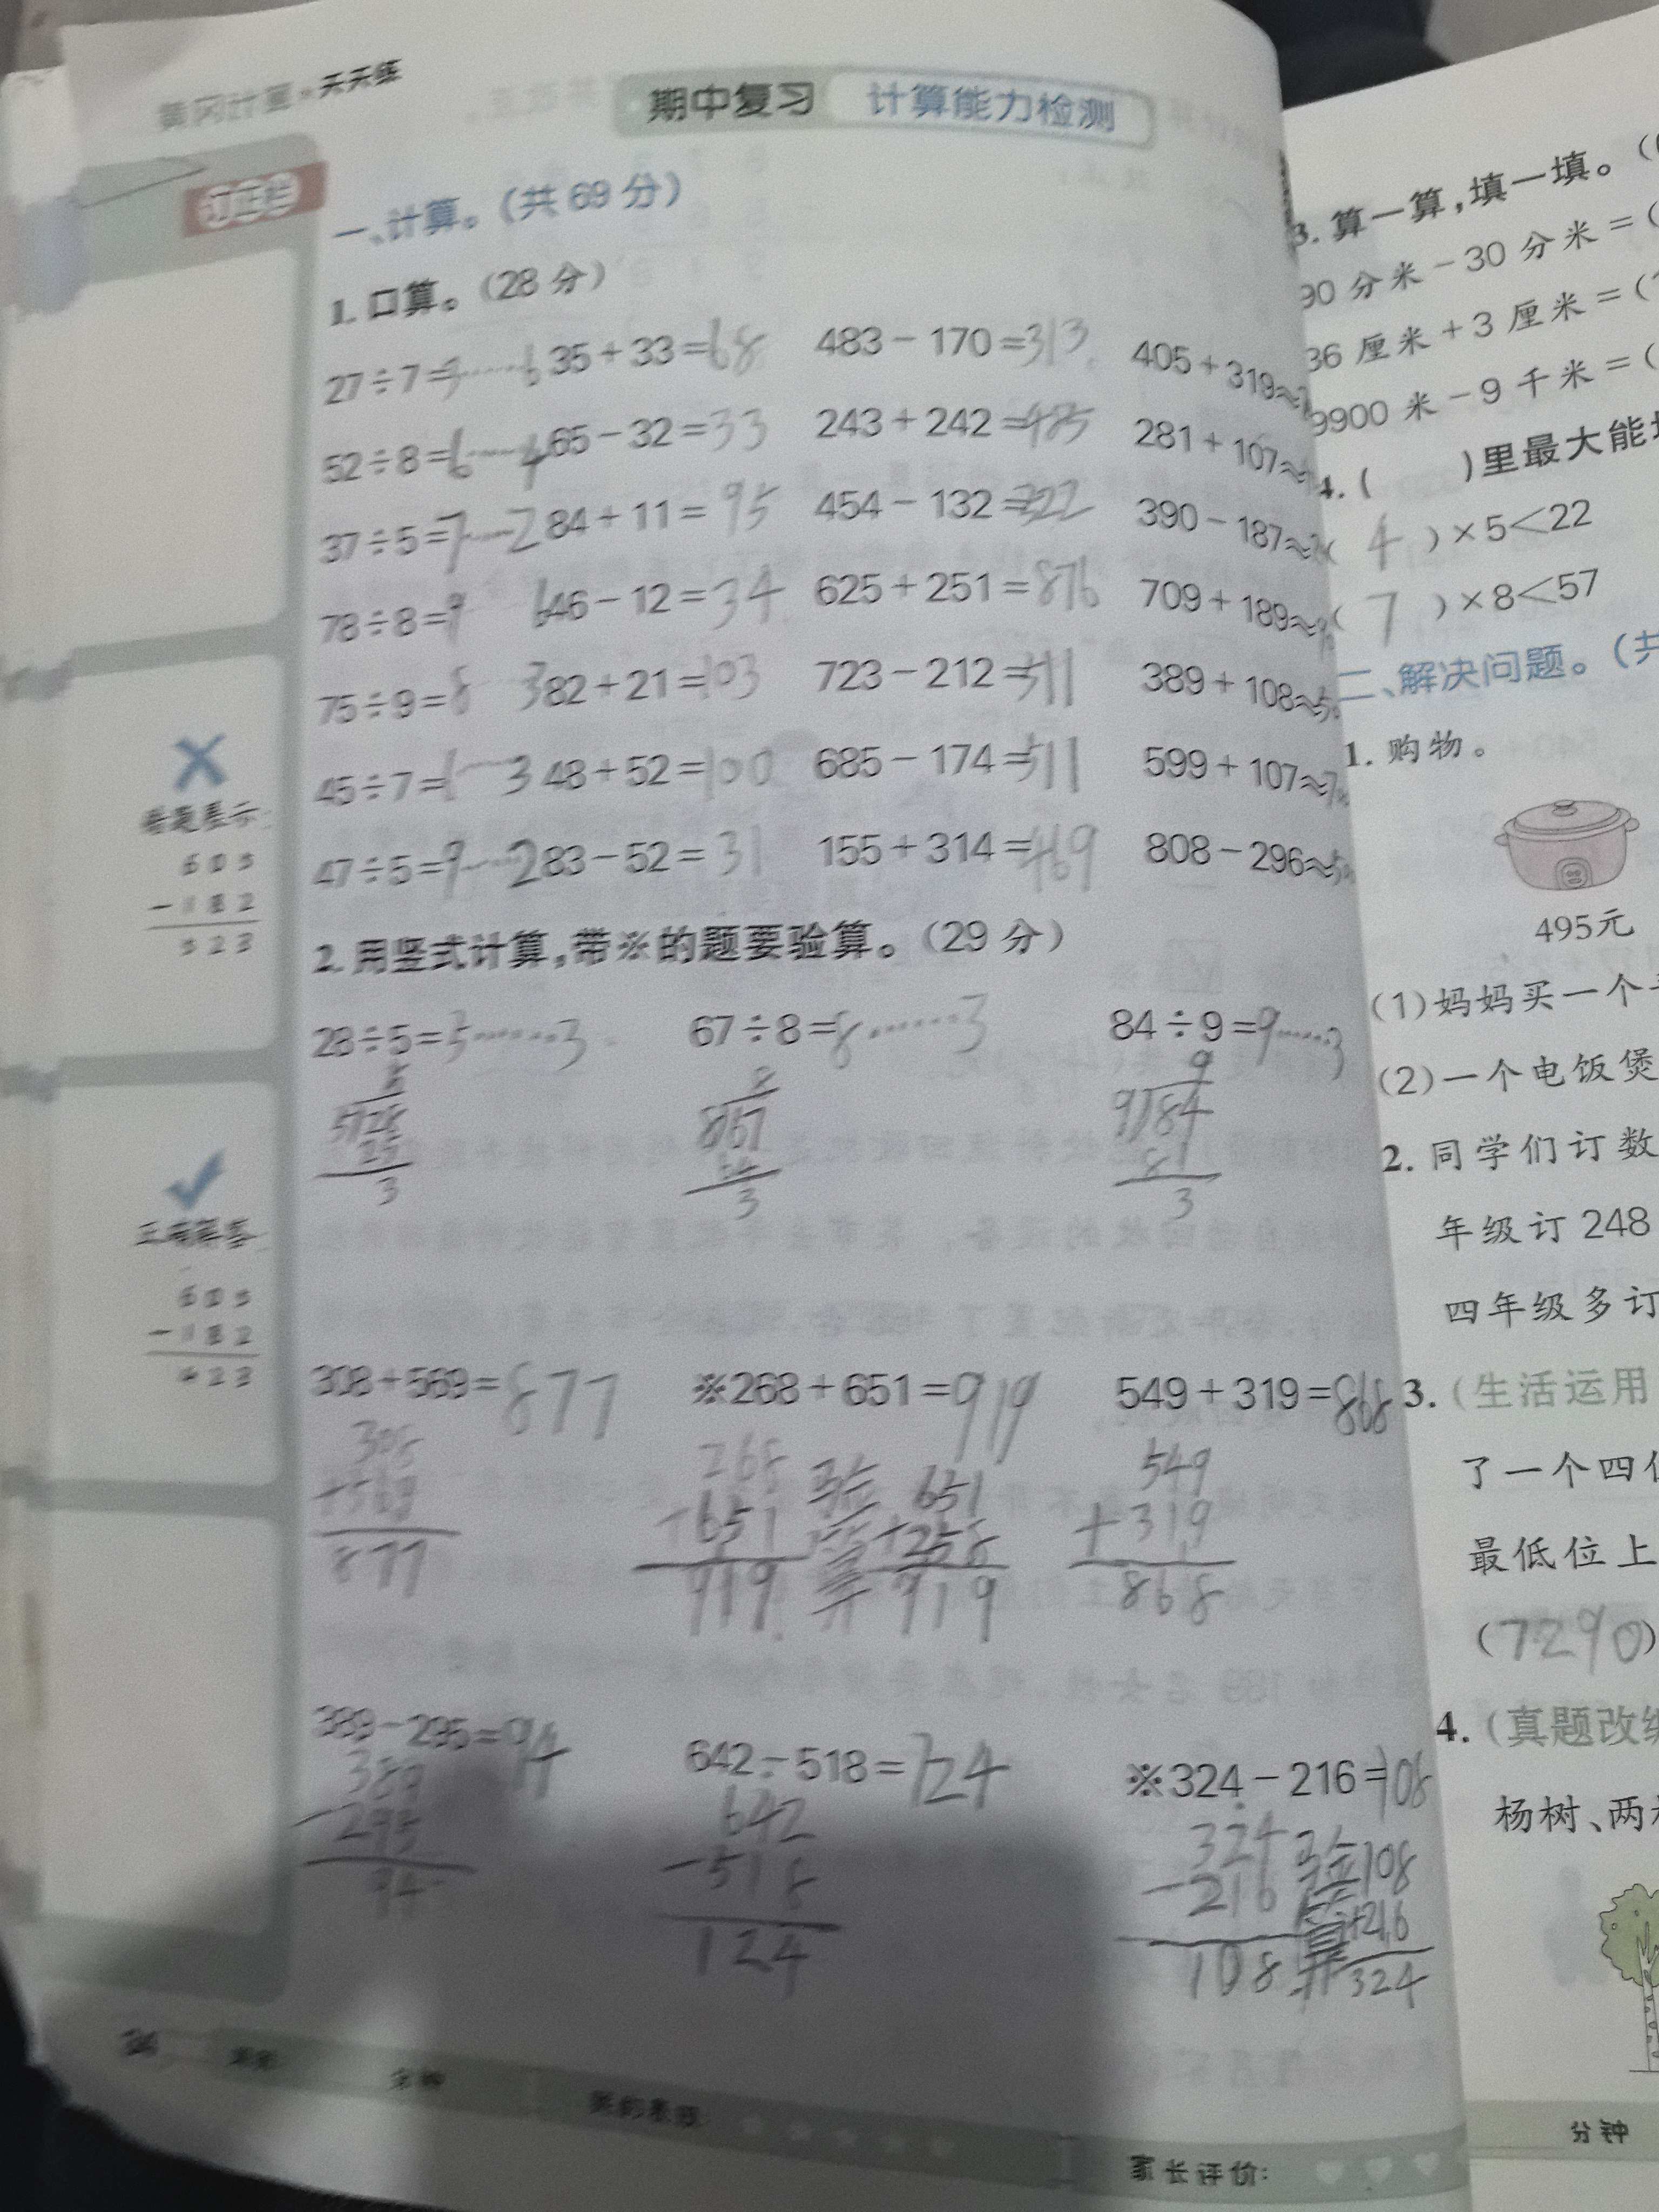 黄冈计算·天天练
期中复习 计算能力检测
订正栏
一、计算。(共 69 分)
1. 口算。(28 分)
27÷7=3……6 35+33=68 483-170=313 405+319≈
52÷8=6……4 65-32=33 243+242=485 281+107≈
37÷5=7……2 84+11=95 454-132=322 390-187≈
78÷8=9 6 46-12=34 625+251=876 709+189≈
75÷9=8 3 82+21=103 723-212=511 389+108≈5
45÷7=6……3 48+52=100 685-174=511 599+107≈7
47÷5=9……2 83-52=31 155+314=469 808-296≈5
2. 用竖式计算,带※的题要验算。(29 分)
28÷5=5……3 67÷8=8……3 84÷9=9……3
5 8 9
5 28 8 67 9 84
25 64 81
3 3 3
308+569=877 ※268+651=919 549+319=868
308 268 验 651 549
+569 +651 算 +268 +319
877 919 919 868
389-295=94 642-518=124 ※324-216=108
389 642 324 验 108
-295 -518 -216 算 +216
94 124 108 324
错题表示:
605
-182
523
正确解答:
605
-182
423
34
分钟
我的表现:
家长评价:
3. 算一算,填一填。(
90 分米-30 分米=(
36 厘米+3 厘米=(
9900 米-9 千米=(
4. ( )里最大能填
( 4 )×5<22
( 7 )×8<57
二、解决问题。(共
1. 购物。
495元
(1)妈妈买一个
(2)一个电饭煲
2. 同学们订数
年级订 248
四年级多订
3. (生活运用
了一个四位
最低位上
(7290)
4. (真题改编
杨树、两
分钟